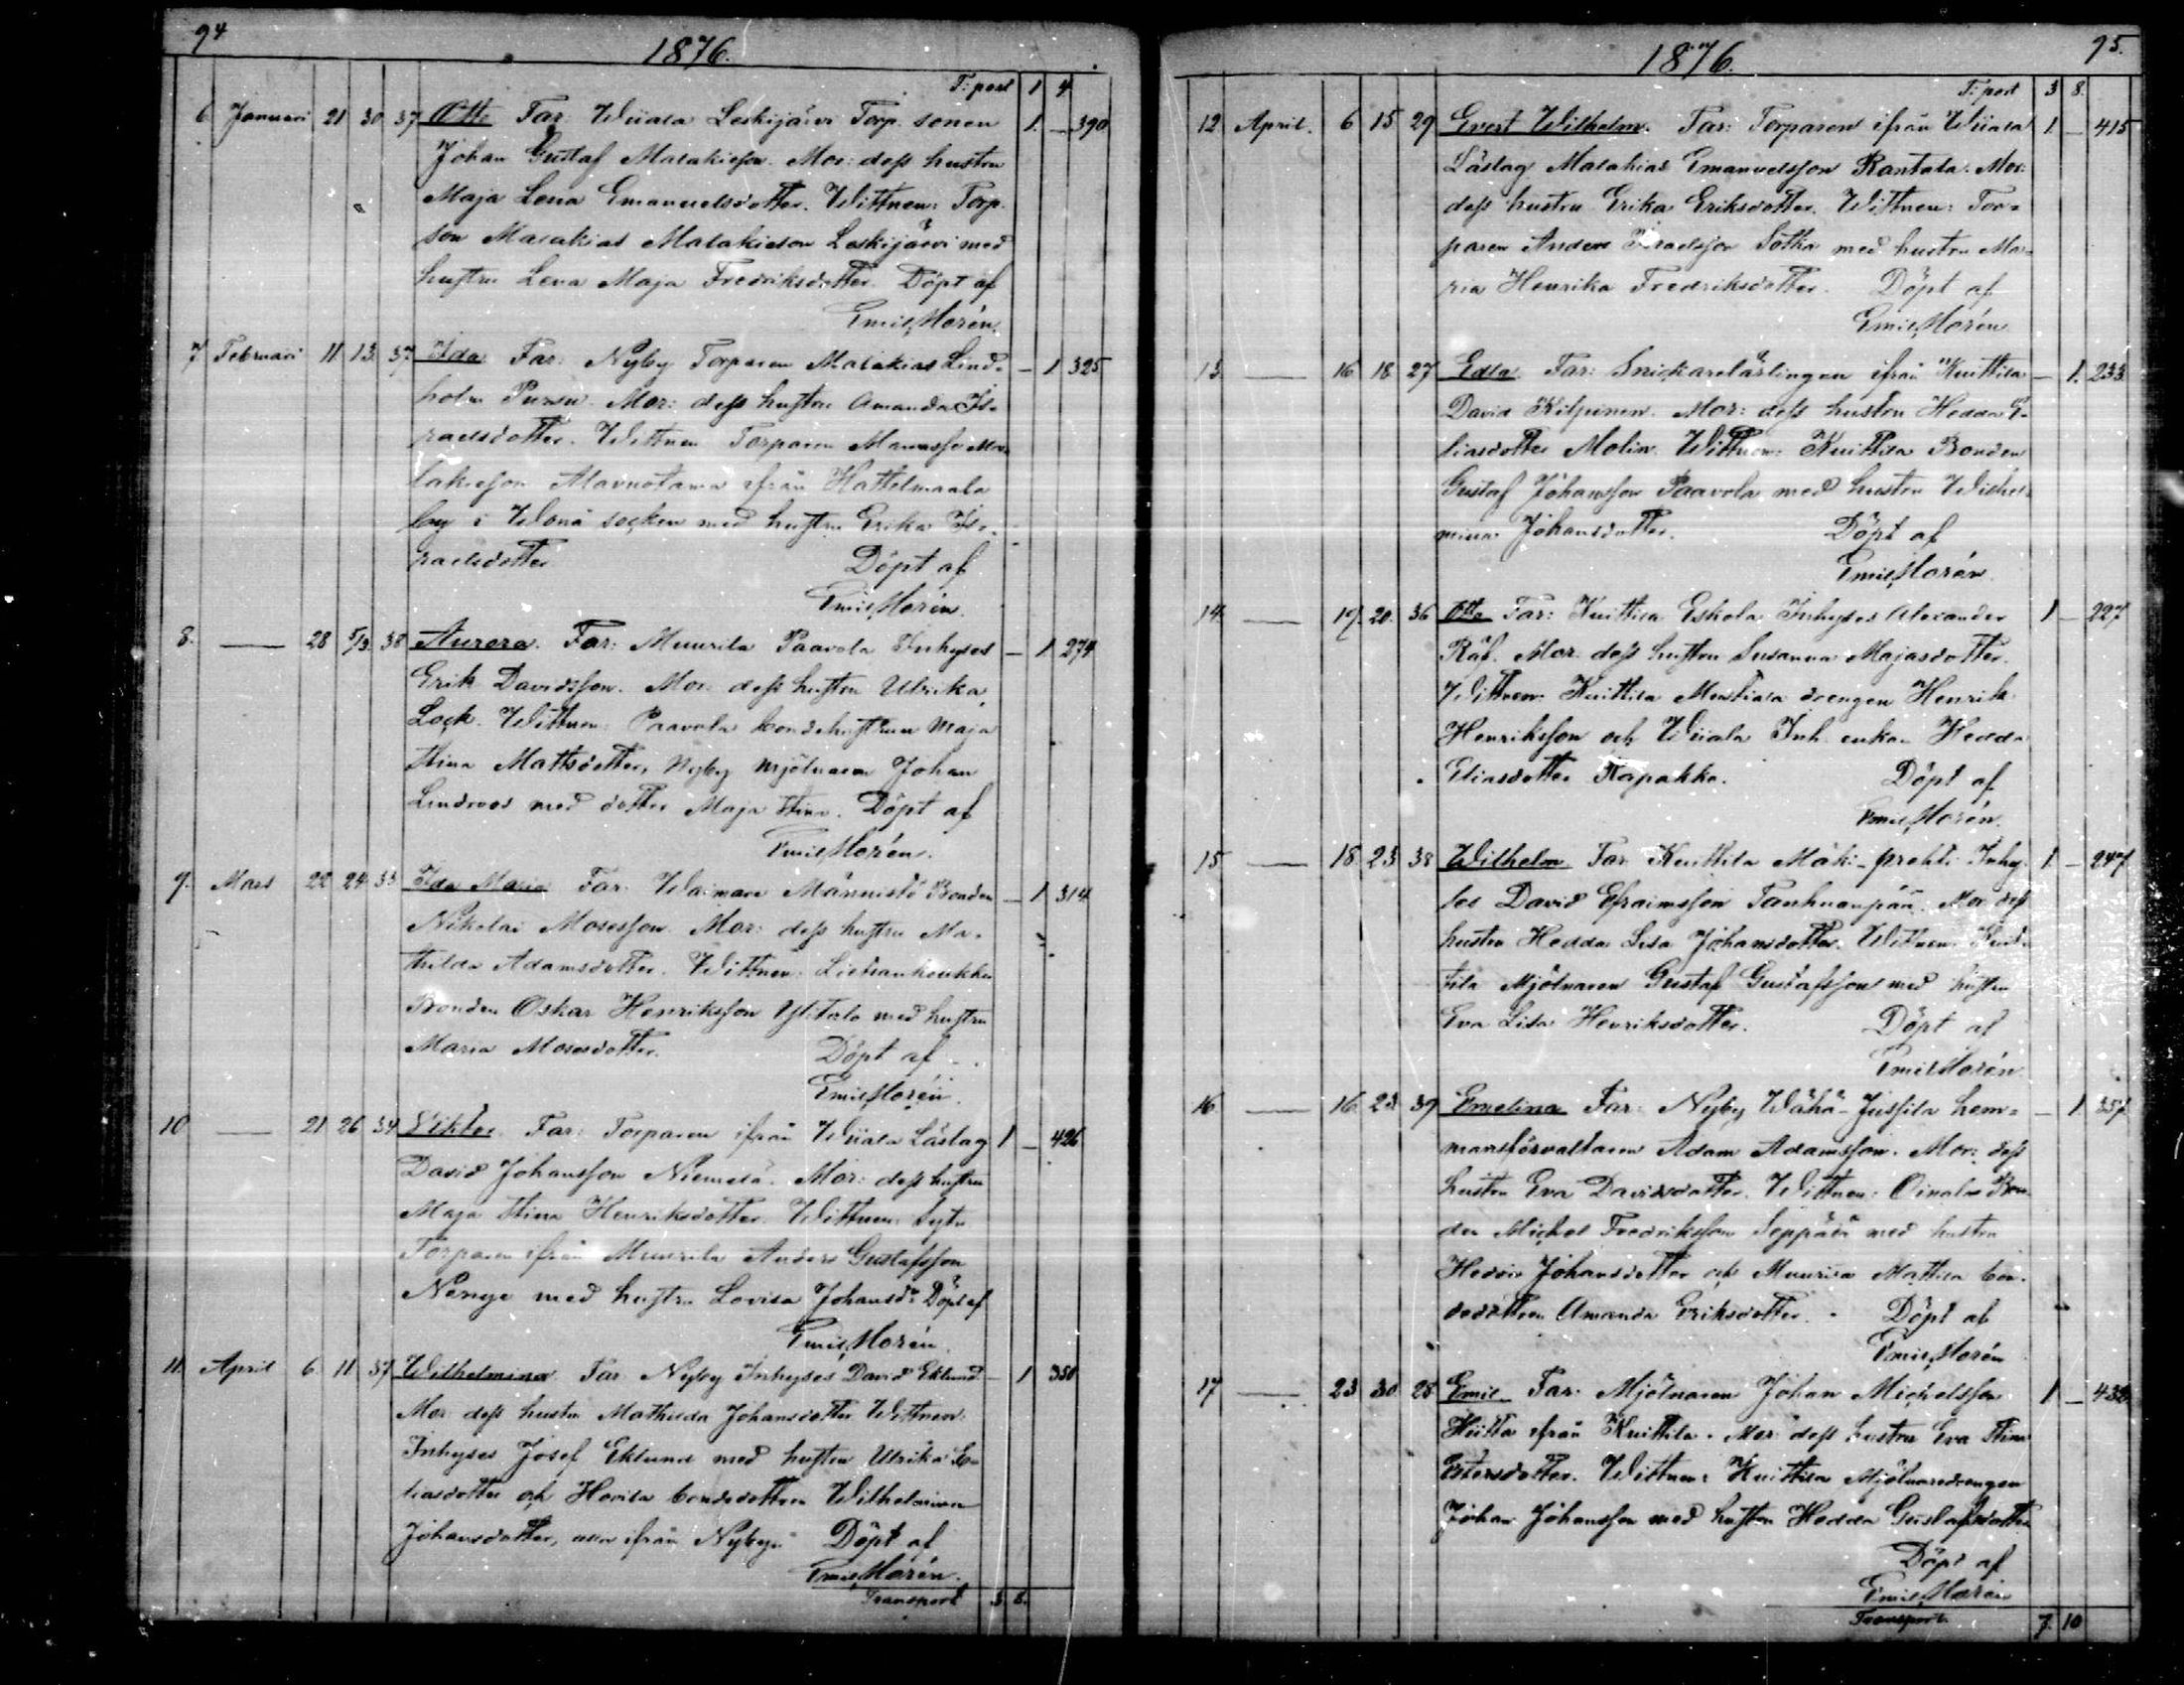 94
1876.
T: port 1 4
6 Januari 21 30 37 Otto Far Wiiala Leskijärvi Torp. sonen 1. — 390
Johan Gustaf Malakieson. Mor: dess hustru
Maja Lena Emanuelsdotter. Wittnen: Torp.
son Malakias Malakieson Leskijärvi med
hustru Lena Maja Fredriksdotter. Döpt af
Emil Horén.
7 Februari 11 13 37 Ida Far: Nyby Torparen Malakias Lind- — 1 325
holm Pursu. Mor: dess hustru Amanda Is-
raelsdotter. Wittnen Torparen Manasse Ma-
lakieson Alavuotama ifrån Hattelmaala
by i Wånå socken med hustru Erika Is-
raelsdotter Döpt af
Emil Horén.
8. — 28 5/3 38 Aurora. Far: Muurila Paavola Inhyses — 1 274
Erik Davidsson. Mor: dess hustru Ulrika
Lock. Wittnen: Paavola bondehustrun Maja
Stina Mattsdotter, Nyby Mjölnaren Johan
Lindroos med dotter Maja Stina. Döpt af
Emil Horén.
9. Mars 22 24 33 Ida Maria Far: Walmari Männistö Bonden — 1 314
Nikolai Mosesson. Mor: dess hustru Ma-
thilda Adamsdotter. Wittnen:
Bonden Oskar Henriksson Ylitalo med hustru
Maria Mosesdotter. Döpt af
Emil Horén.
10 — 21 26 34 Viktor. Far: Torparen ifrån Wiiala Låslag 1 — 426
David Johansson Niemelä. Mor: dess hustru
Maja Stina Henriksdotter. Wittnen: Syt.
Torparen ifrån Muurila Anders Gustafsson
med hustru Lovisa Johansdr. Döpt af
Emil Horén.
11. April 6. 11 37 Wilhelmina. Far Nyby Inhyses David Eklund — 1 350
Mor dess hustru Mathilda Johansdotter Wittnen:
Inhyses Josef Eklund med hustru Ulrika E-
liasdotter och Hovila bondedottren Wilhelmina
Johansdotter, alla ifrån Nyby. Döpt af
Emil Horén.
Transport 3. 8.
95.
1876.
T: port 3 8.
12 April. 6 15 29 Evert Wilhelm. Far: Torparen ifrån Wiiala 1. — 415
Låslag Malakias Emanuelsson Rantala. Mor:
dess hustru Erika Eriksdotter. Wittnen: Tor-
paren Anders Israelsson Sotka med hustru Ma-
ria Henrika Fredriksdotter. Döpt af
Emil Horén
13. — 16 18 27 Edla. Far: Snickarelärlingen ifrån Kuittila — 1. 233
David Kilpinen. Mor: dess hustru Hedda E-
liasdotter Molin. Wittnen: Kuittila Bonden
Gustaf Johansson Paavola med hustru Wilhel-
mina Johansdotter. Döpt af
Emil Horén.
14. — 19. 20. 36 Otto Far: Kuittila Eskola Inhyses Alexander 1 — 227
Räf. Mor dess hustru Susanna Majasdotter.
Wittnen: Kuittila Mustiala drengen Henrik
Henriksson och Wiiala Inh. enkan Hedda
Eliasdotter Korpakka. Döpt af
Emil Horén.
15 — 18. 23 38 Wilhelm Far Kuittila Mäki-prehti Inhy- 1. — 247
ses David Efraimsson Tanhuanpää. Mor dess
hustru Hedda Lisa Johansdotter. Wittnen: Kuit-
tila Mjölnaren Gustaf Gustafsson med hustru
Eva Lisa Henriksdotter. Döpt af
Emil Horén
16. — 16. 23 39 Emelina Far: Nyby Wähä-Jussila hem- — 1. 357
mansförvaltaren Adam Adamsson. Mor: dess
hustru Eva Davidsdotter. Wittnen: Oinala Bon-
den Michel Fredriksson Seppälä med hustru
Hedvig Johansdotter och Muurila Mattila bon-
dedottren Amanda Eriksdotter. Döpt af
Emil Horén
17 — 23 30 28 Emil Far: Mjölnaren Johan Michelsson 1 — 432
Hiitta ifrån Kuittila. Mor: dess hustru Eva Stina
Wittnen: Kuittila Mjölnaredrengen
Johan Johansson med hustru Hedda Gustafsdotter
Döpt af
Emil Horén
Transport. 7. 10